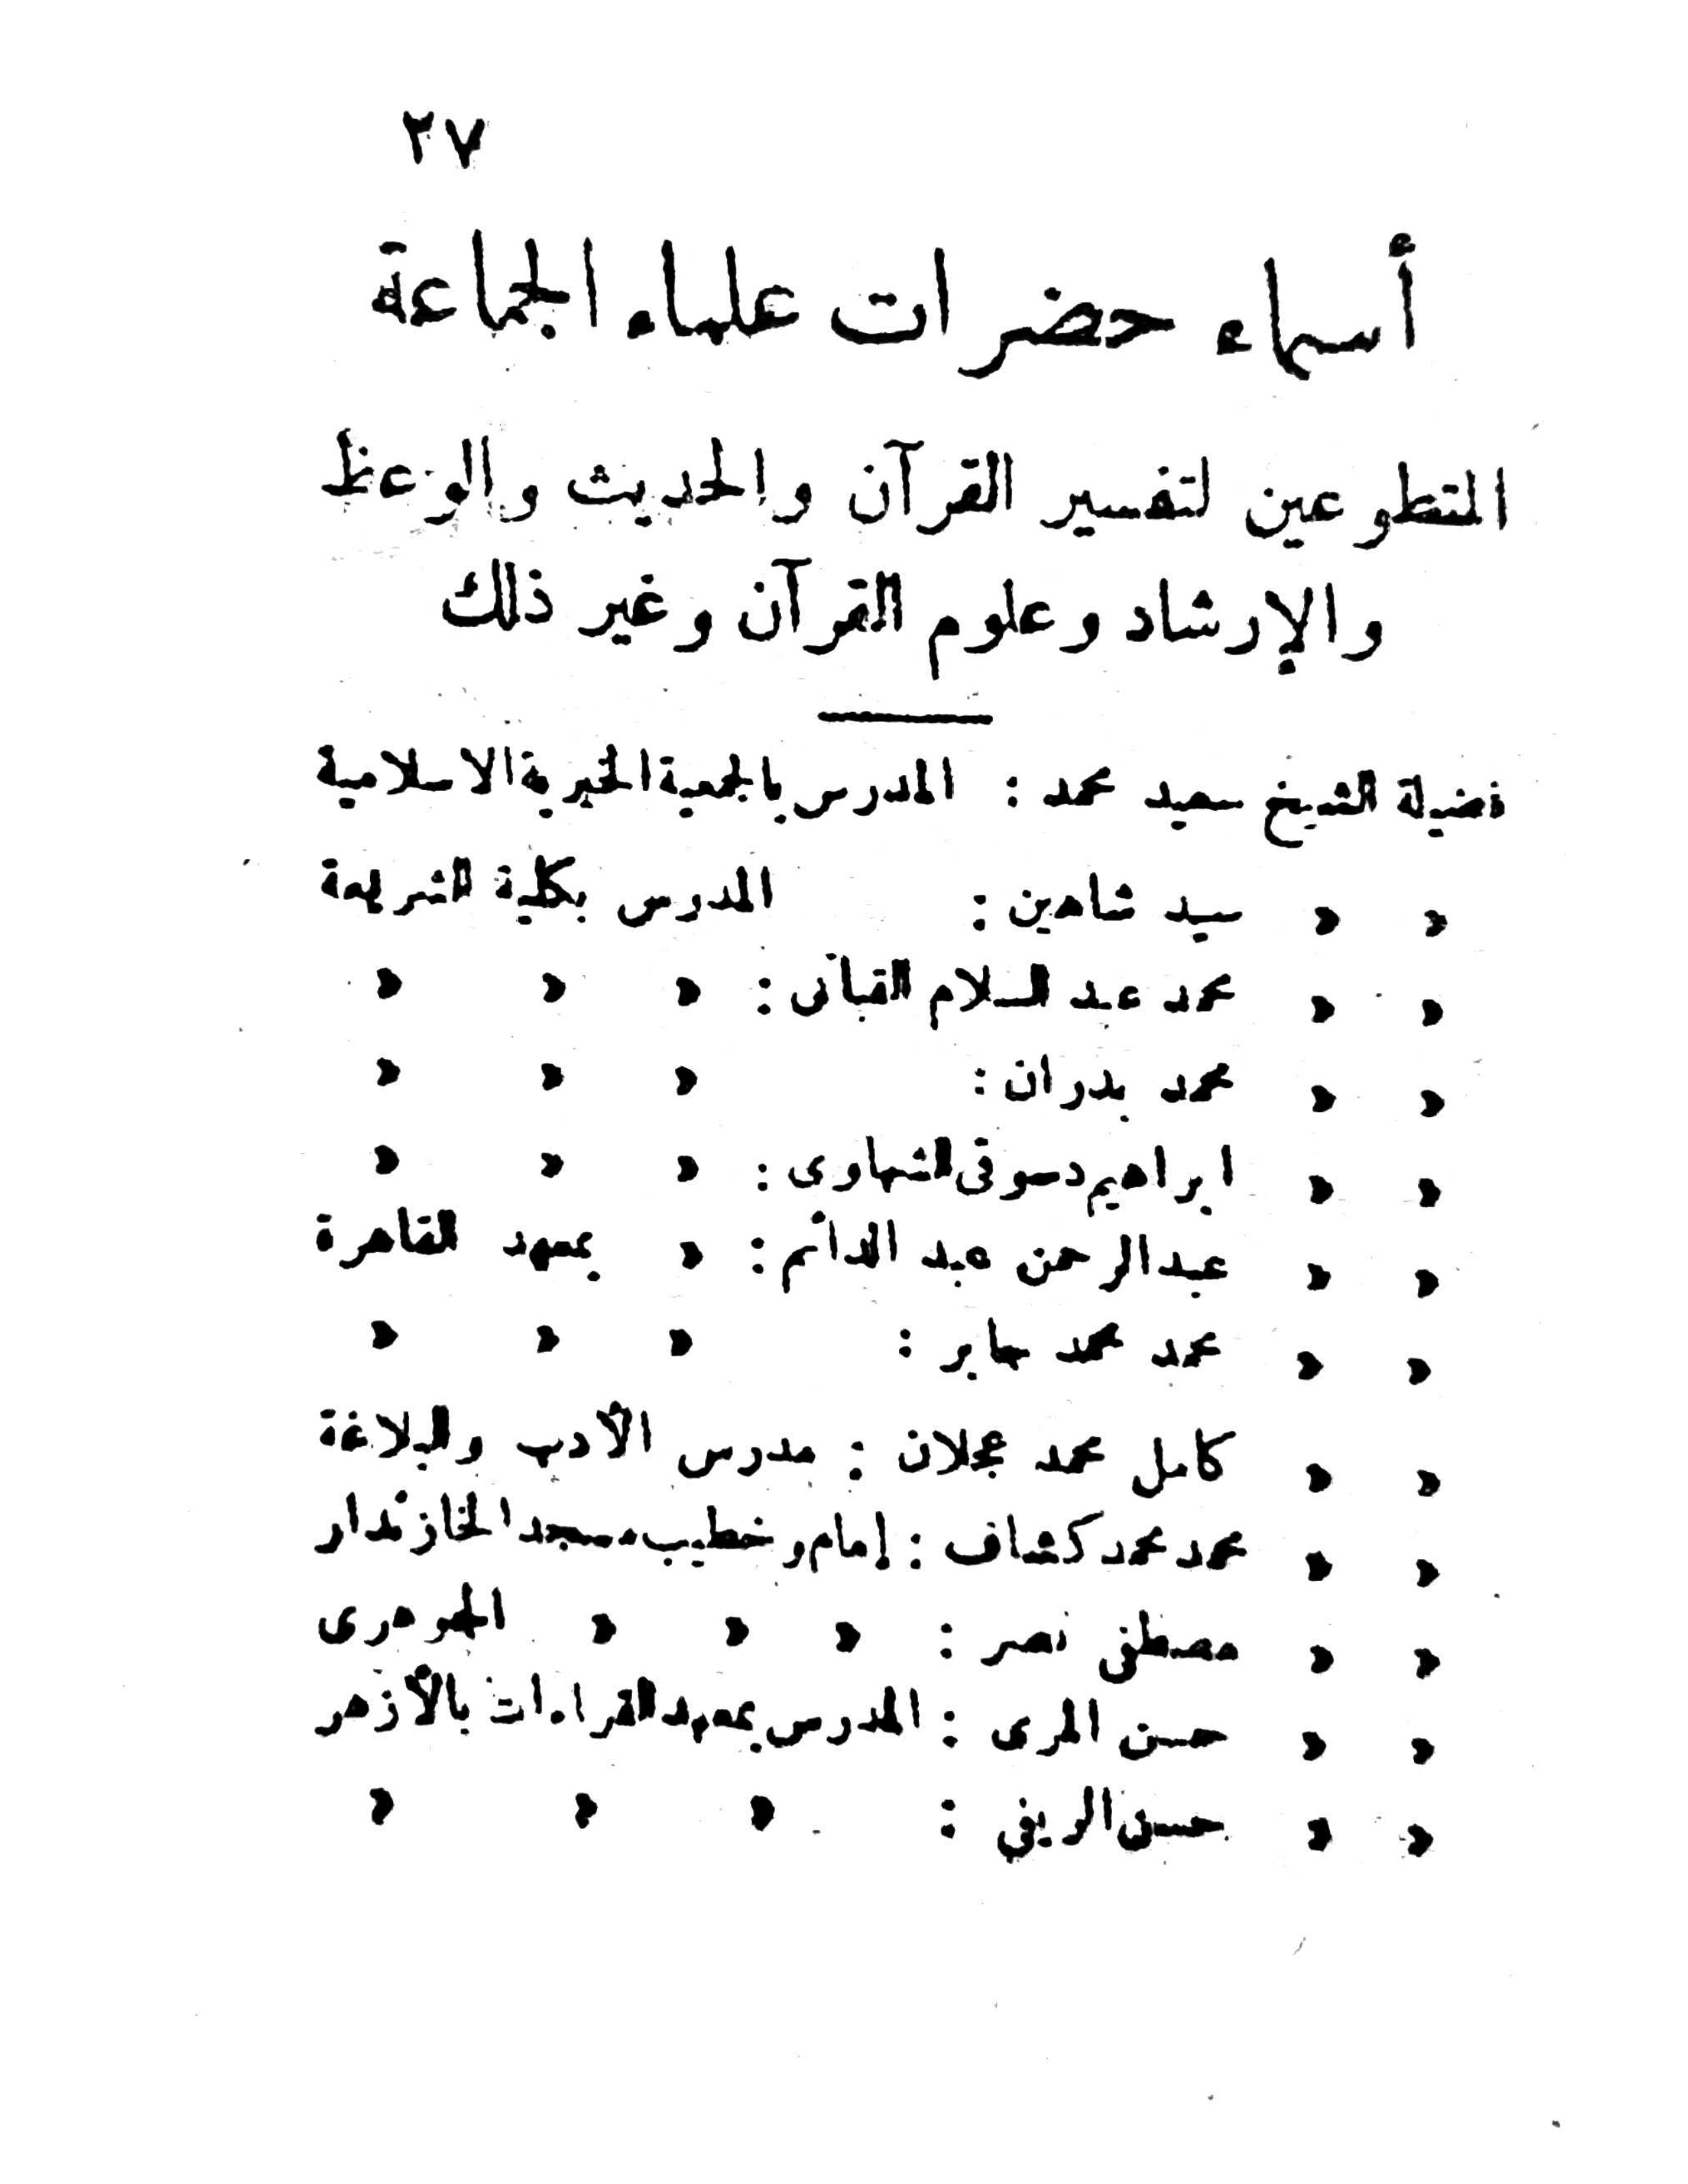 ٢٧
أسماء حضرات علماء الجماعة
المتطوعين لتفسير القرآن والحديث والوعظ
والإرشاد وعلوم القرآن وغير ذلك
فضيلة الشيخ سعيد محمد : المدرس بالجمعية الخيرية الاسلامية
« « سيد شاهين : المدرس بكلية الشريعة
« « محمد عبد السلام القبانى : « « «
« « محمد بدران : « « «
« « ابراهيم دسوقى الشهاوى : « « «
« « عبد الرحمن عبد الدائم : « بمعهد القاهرة
« « محمد محمد جابر : « « «
« « كامل محمد عجلان : مدرس الأدب والبلاغة
« « محمد محمد كشاف : إمام وخطيب مسجد الخازندار
« « مصطفى نصر : « « « الجوهرى
« « حسن المرى : المدرس بمعهد القراءات بالأزهر
« « حسن الريفى : « « «